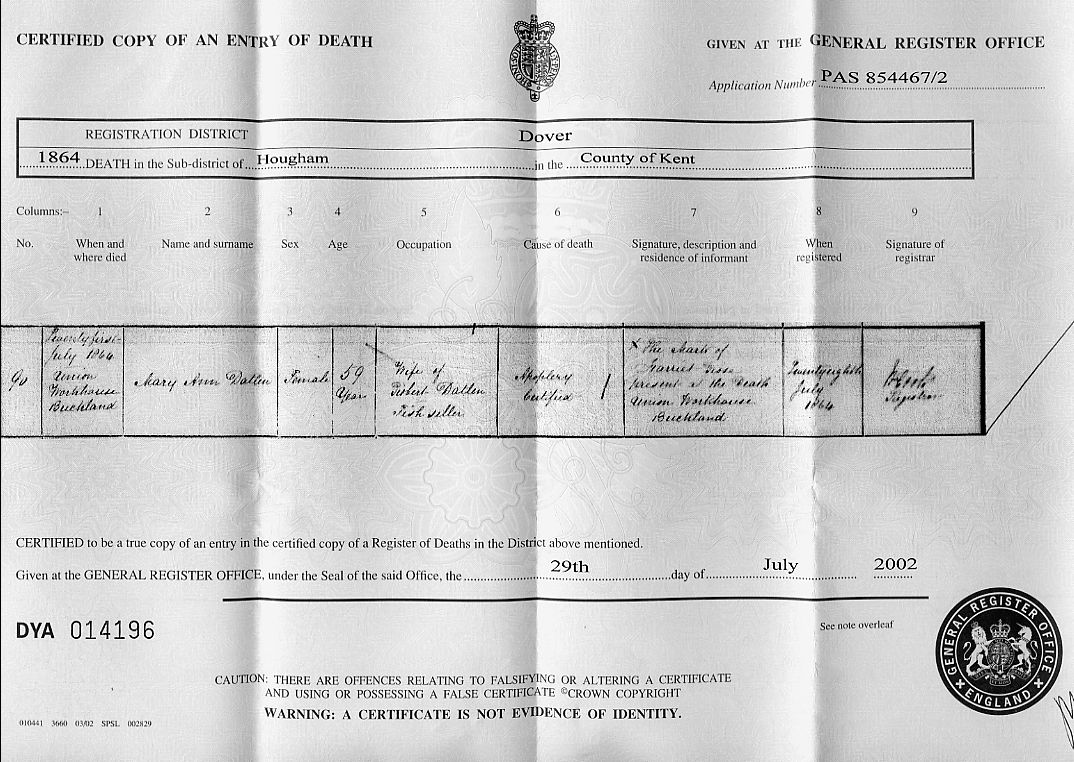 CERTIFIED COPY OF AN ENTRY OF DEATH
GIVEN AT THE GENERAL REGISTER OFFICE
Application Number PAS 854467/2
REGISTRATION DISTRICT Dover
1864 DEATH in the Sub-district of Hougham in the County of Kent
Columns:– 1 2 3 4 5 6 7 8 9
No. When and Name and surname Sex Age Occupation Cause of death Signature, description and When Signature of
where died residence of informant registered registrar
90
Twenty first
July 1864
Union
Workhouse
Buckland
Mary Ann Datlen
Female
59
Years
Wife of
Robert Datlen
Fish seller
Apoplexy
Certified
X The Mark of
Harriet
present at the Death
Union Workhouse
Buckland
Twenty eighth
July
1864
Registrar
CERTIFIED to be a true copy of an entry in the certified copy of a Register of Deaths in the District above mentioned.
Given at the GENERAL REGISTER OFFICE, under the Seal of the said Office, the 29th day of July 2002
DYA 014196
See note overleaf
CAUTION: THERE ARE OFFENCES RELATING TO FALSIFYING OR ALTERING A CERTIFICATE
AND USING OR POSSESSING A FALSE CERTIFICATE ©CROWN COPYRIGHT
WARNING: A CERTIFICATE IS NOT EVIDENCE OF IDENTITY.
010441 3660 03/02 SPSL 002829
GENERAL REGISTER OFFICE
ENGLAND